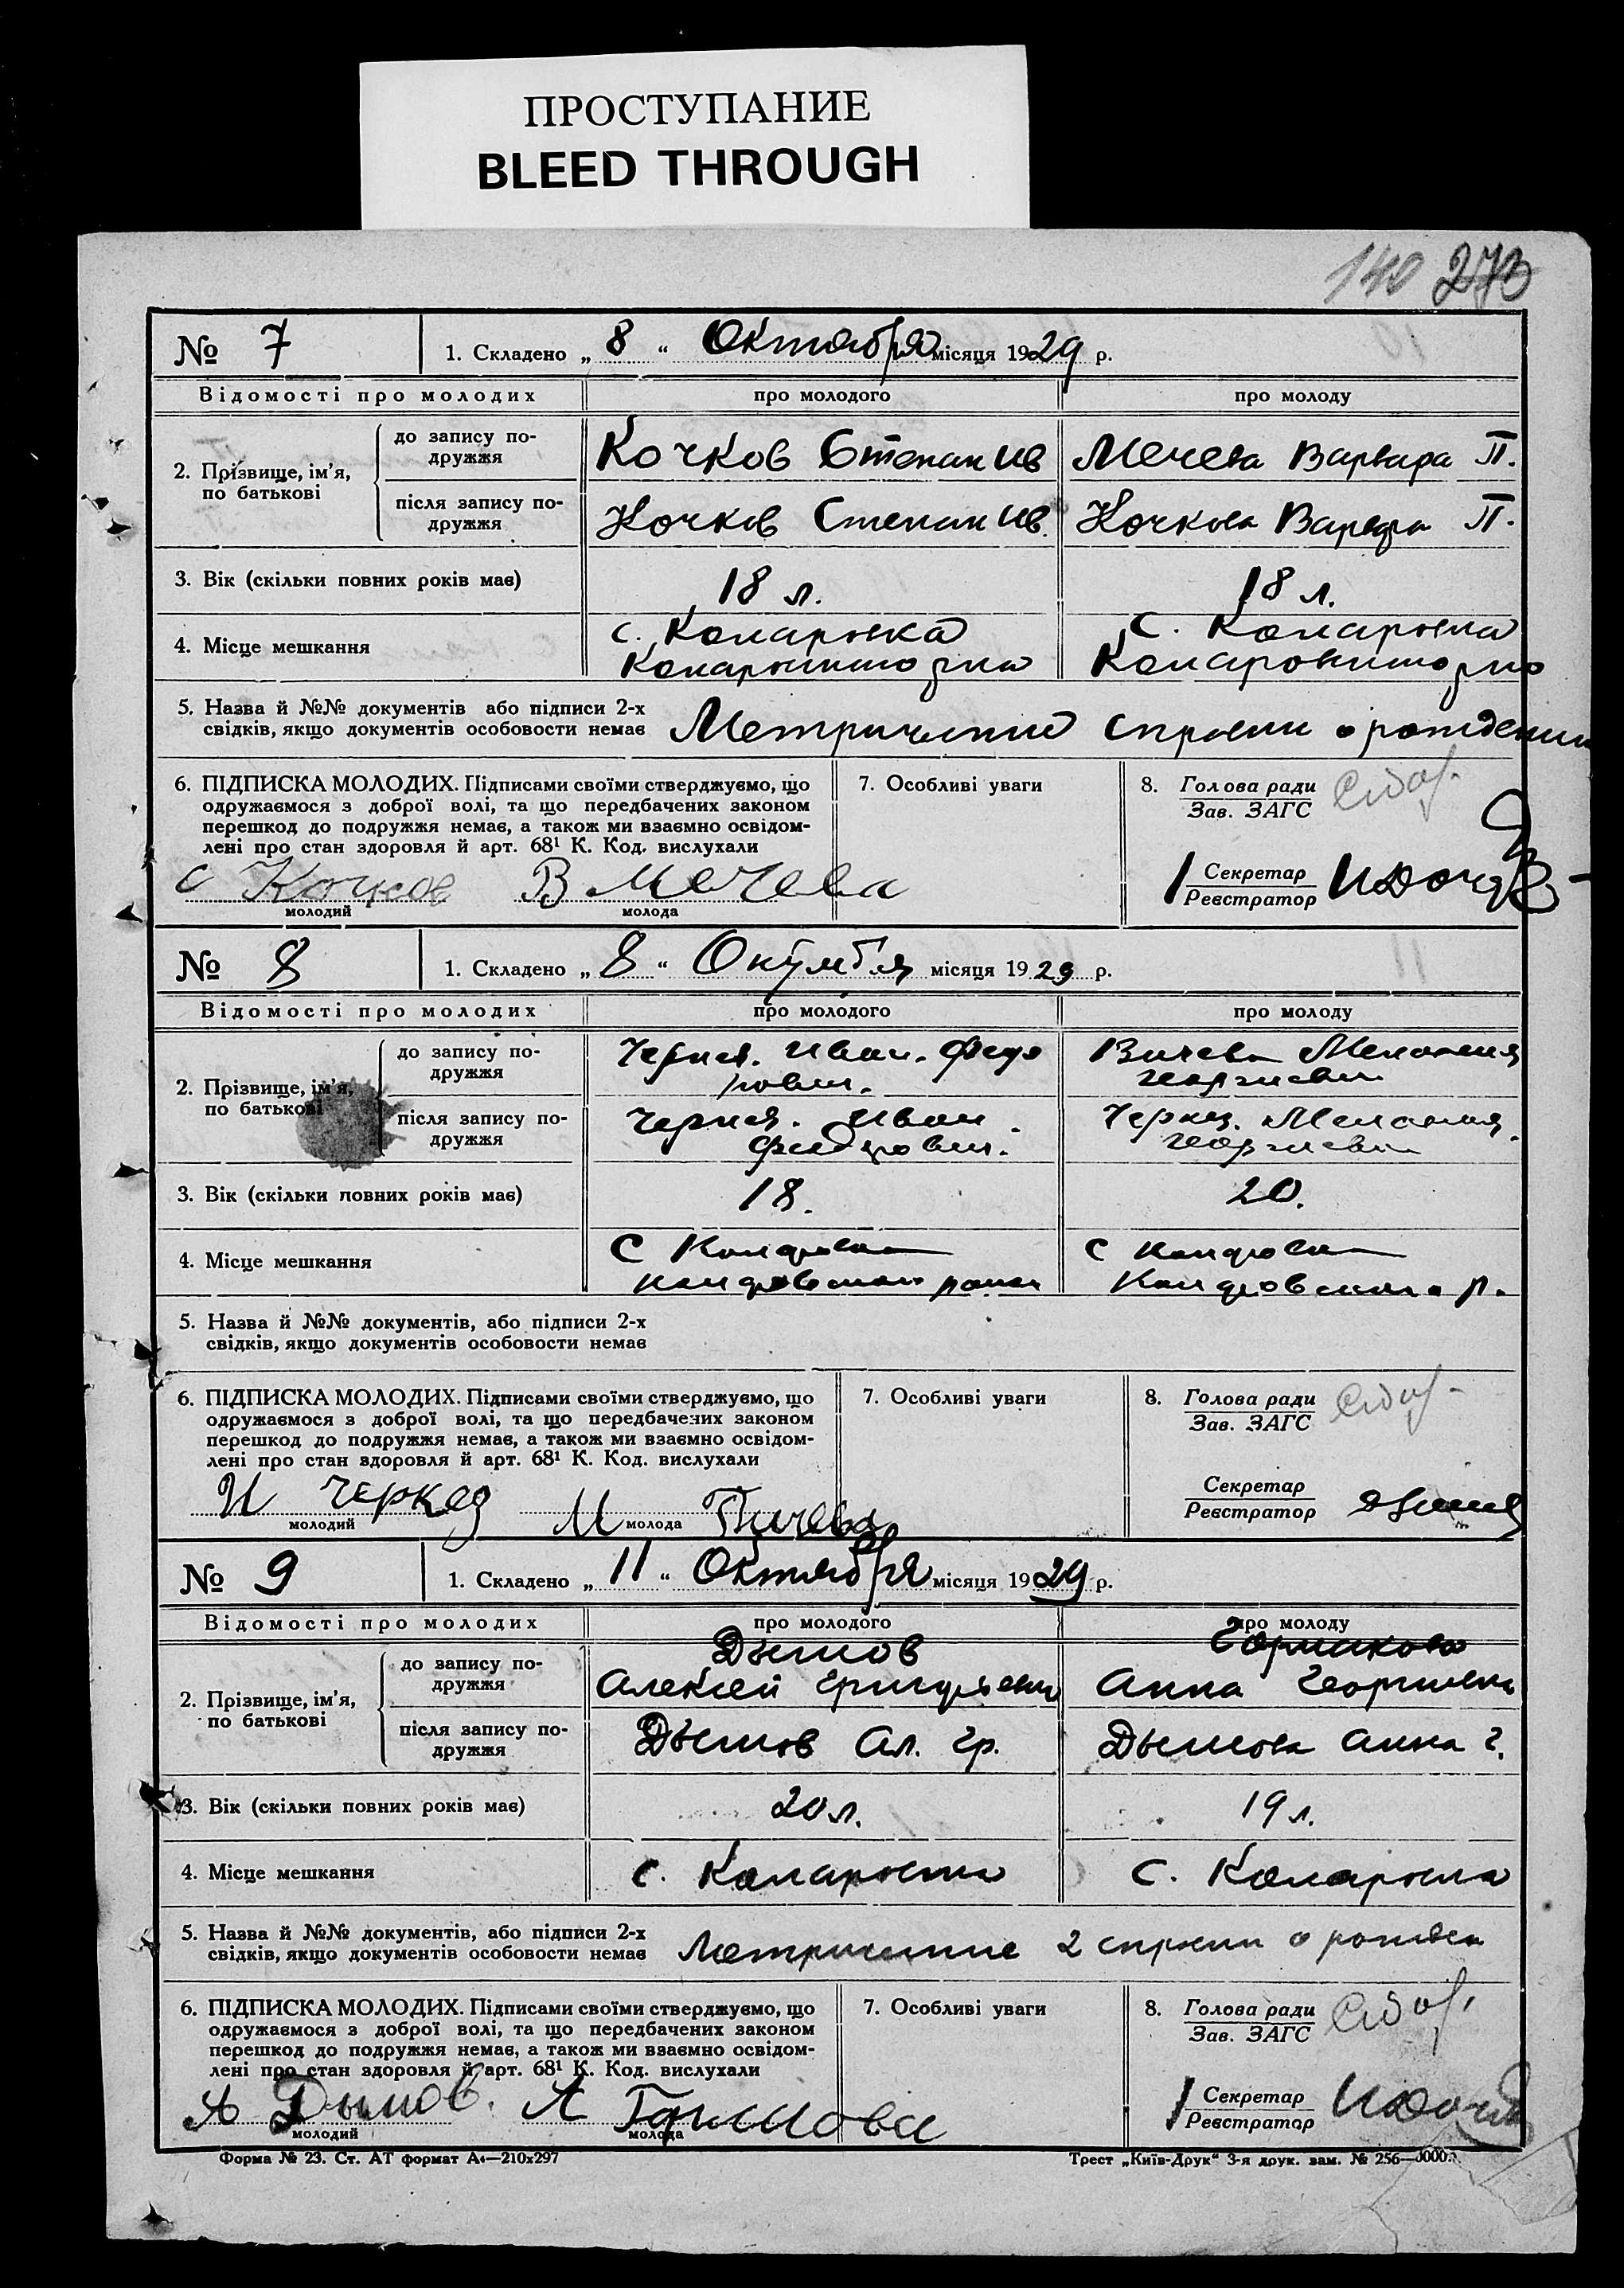 ПРОСТУПАНИЕ
BLEED THROUGH
140 273
№ 7 1. Складено „ 8 “ Октября місяця 1929 р.
Відомості про молодих про молодого про молоду
2. Прізвище, ім’я, по батькові
до запису по-
дружжя
Кочков Степан Ив Мечева Варвара П.
після запису по-
дружжя
Кочков Степан Ив. Кочкова Варвара П.
3. Вік (скільки повних років має) 18 л. 18 л.
4. Місце мешкання
с.
с.
5. Назва й №№ документів або підписи 2-х
свідків, якщо документів особовости немає
о рождении
6. ПІДПИСКА МОЛОДИХ. Підписами своїми стверджуємо, що
одружаємося з доброї волі, та що передбачених законом
перешкод до подружжя немає, а також ми взаємно освідом-
лені про стан здоровля й арт. 68¹ К. Код. вислухали
С Кочков В Мечева
молодий молода
7. Особливі уваги
8. Голова ради
Зав. ЗАГС
Секретар
Реєстратор
№ 8 1. Складено „ 8 “ місяця 1929 р.
Відомості про молодих про молодого про молоду
2. Прізвище, ім’я,
по батькові
до запису по-
дружжя
Иван
після запису по-
дружжя
Иван
3. Вік (скільки повних років має) 18. 20.
4. Місце мешкання
С
С
5. Назва й №№ документів, або підписи 2-х
свідків, якщо документів особовости немає
6. ПІДПИСКА МОЛОДИХ. Підписами своїми стверджуємо, що
одружаємося з доброї волі, та що передбачених законом
перешкод до подружжя немає, а також ми взаємно освідом-
лені про стан здоровля й арт. 68¹ К. Код. вислухали
И Черкез М
молодий молода
7. Особливі уваги
8. Голова ради
Зав. ЗАГС
Секретар
Реєстратор
№ 9 1. Складено „ 11 “ Октября місяця 1929 р.
Відомості про молодих про молодого про молоду
2. Прізвище, ім’я,
по батькові
до запису по-
дружжя
Дымов
Алексей Григорьевич Анна Георгиевна
після запису по-
дружжя
Дымов Ал. Гр. Дымова Анна Г.
3. Вік (скільки повних років має) 20 л. 19 л.
4. Місце мешкання с. с.
5. Назва й №№ документів, або підписи 2-х
свідків, якщо документів особовости немає
2 о
6. ПІДПИСКА МОЛОДИХ. Підписами своїми стверджуємо, що
одружаємося з доброї волі, та що передбачених законом
перешкод до подружжя немає, а також ми взаємно освідом-
лені про стан здоровля й арт. 68¹ К. Код. вислухали
А Дымов. А
молодий молода
7. Особливі уваги
8. Голова ради
Зав. ЗАГС
Секретар
Реєстратор
Форма № 23. Ст. АТ формат А4—210х297 Трест „Київ-Друк“ 3-я друк. зам. № 256—